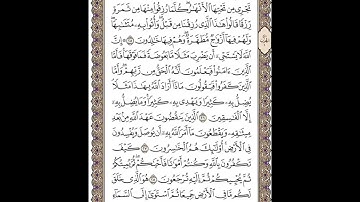 تَجْرِي مِن تَحْتِهَا الْأَنْهَارُ كُلَّمَا رُزِقُوا مِنْهَا مِن ثَمَرَةٍ
رِّزْقًا قَالُوا هَذَا الَّذِي رُزِقْنَا مِن قَبْلُ وَأُتُوا بِهِ مُتَشَابِهًا
وَلَهُمْ فِيهَا أَزْوَاجٌ مُّطَهَّرَةٌ وَهُمْ فِيهَا خَالِدُونَ ۞ إِنَّ
اللَّهَ لَا يَسْتَحْيِي أَن يَضْرِبَ مَثَلًا مَّا بَعُوضَةً فَمَا فَوْقَهَا فَأَمَّا
الَّذِينَ آمَنُوا فَيَعْلَمُونَ أَنَّهُ الْحَقُّ مِن رَّبِّهِمْ وَأَمَّا
الَّذِينَ كَفَرُوا فَيَقُولُونَ مَاذَا أَرَادَ اللَّهُ بِهَذَا مَثَلًا
يُضِلُّ بِهِ كَثِيرًا وَيَهْدِي بِهِ كَثِيرًا وَمَا يُضِلُّ بِهِ
إِلَّا الْفَاسِقِينَ الَّذِينَ يَنقُضُونَ عَهْدَ اللَّهِ مِن بَعْدِ
مِيثَاقِهِ وَيَقْطَعُونَ مَا أَمَرَ اللَّهُ بِهِ أَن يُوصَلَ وَيُفْسِدُونَ
فِي الْأَرْضِ أُولَئِكَ هُمُ الْخَاسِرُونَ كَيْفَ
تَكْفُرُونَ بِاللَّهِ وَكُنتُمْ أَمْوَاتًا فَأَحْيَاكُمْ ثُمَّ يُمِيتُكُمْ
ثُمَّ يُحْيِيكُمْ ثُمَّ إِلَيْهِ تُرْجَعُونَ هُوَ الَّذِي خَلَقَ
لَكُم مَّا فِي الْأَرْضِ جَمِيعًا ثُمَّ اسْتَوَى إِلَى السَّمَاءِ